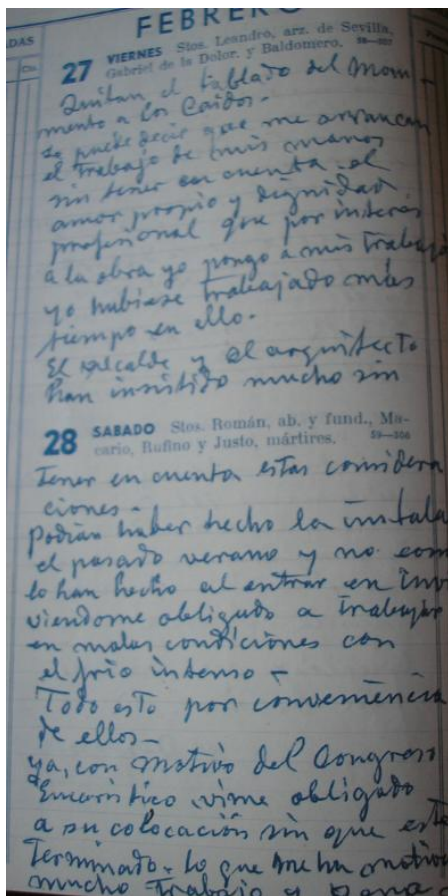 FEBRERO
DAS
27 VIERNES Stos. Leandro, arz. de Sevilla,
Gabriel de la Dolor. y Baldomero. 58—307
Quitan el tablado del Monu-
mento a los Caidos.-
Se puede decir que me arrancan
el trabajo de mis manos
sin tener en cuenta el
amor propio y dignidad
profesional que por interes
a la obra yo pongo a mis trabajos
yo hubiese trabajado más
tiempo en ello.
El alcalde y el arquitecto
han insistido mucho sin
28 SABADO Stos. Román, ab. y fund., Ma-
cario, Rufino y Justo, mártires. 59—306
tener en cuenta estas considera
ciones.-
Podian haber hecho la instala
el pasado verano y no com
lo han hecho al entrar en inv
viendome obligado a trabajar
en malas condiciones con
el frio intenso -
Todo esto por conveniencia
de ellos-
ya, con motivo del Congreso
Eucaristico vime obligado
a su colocación sin que este
terminado. lo que me ha motiva
mucho trabajo y